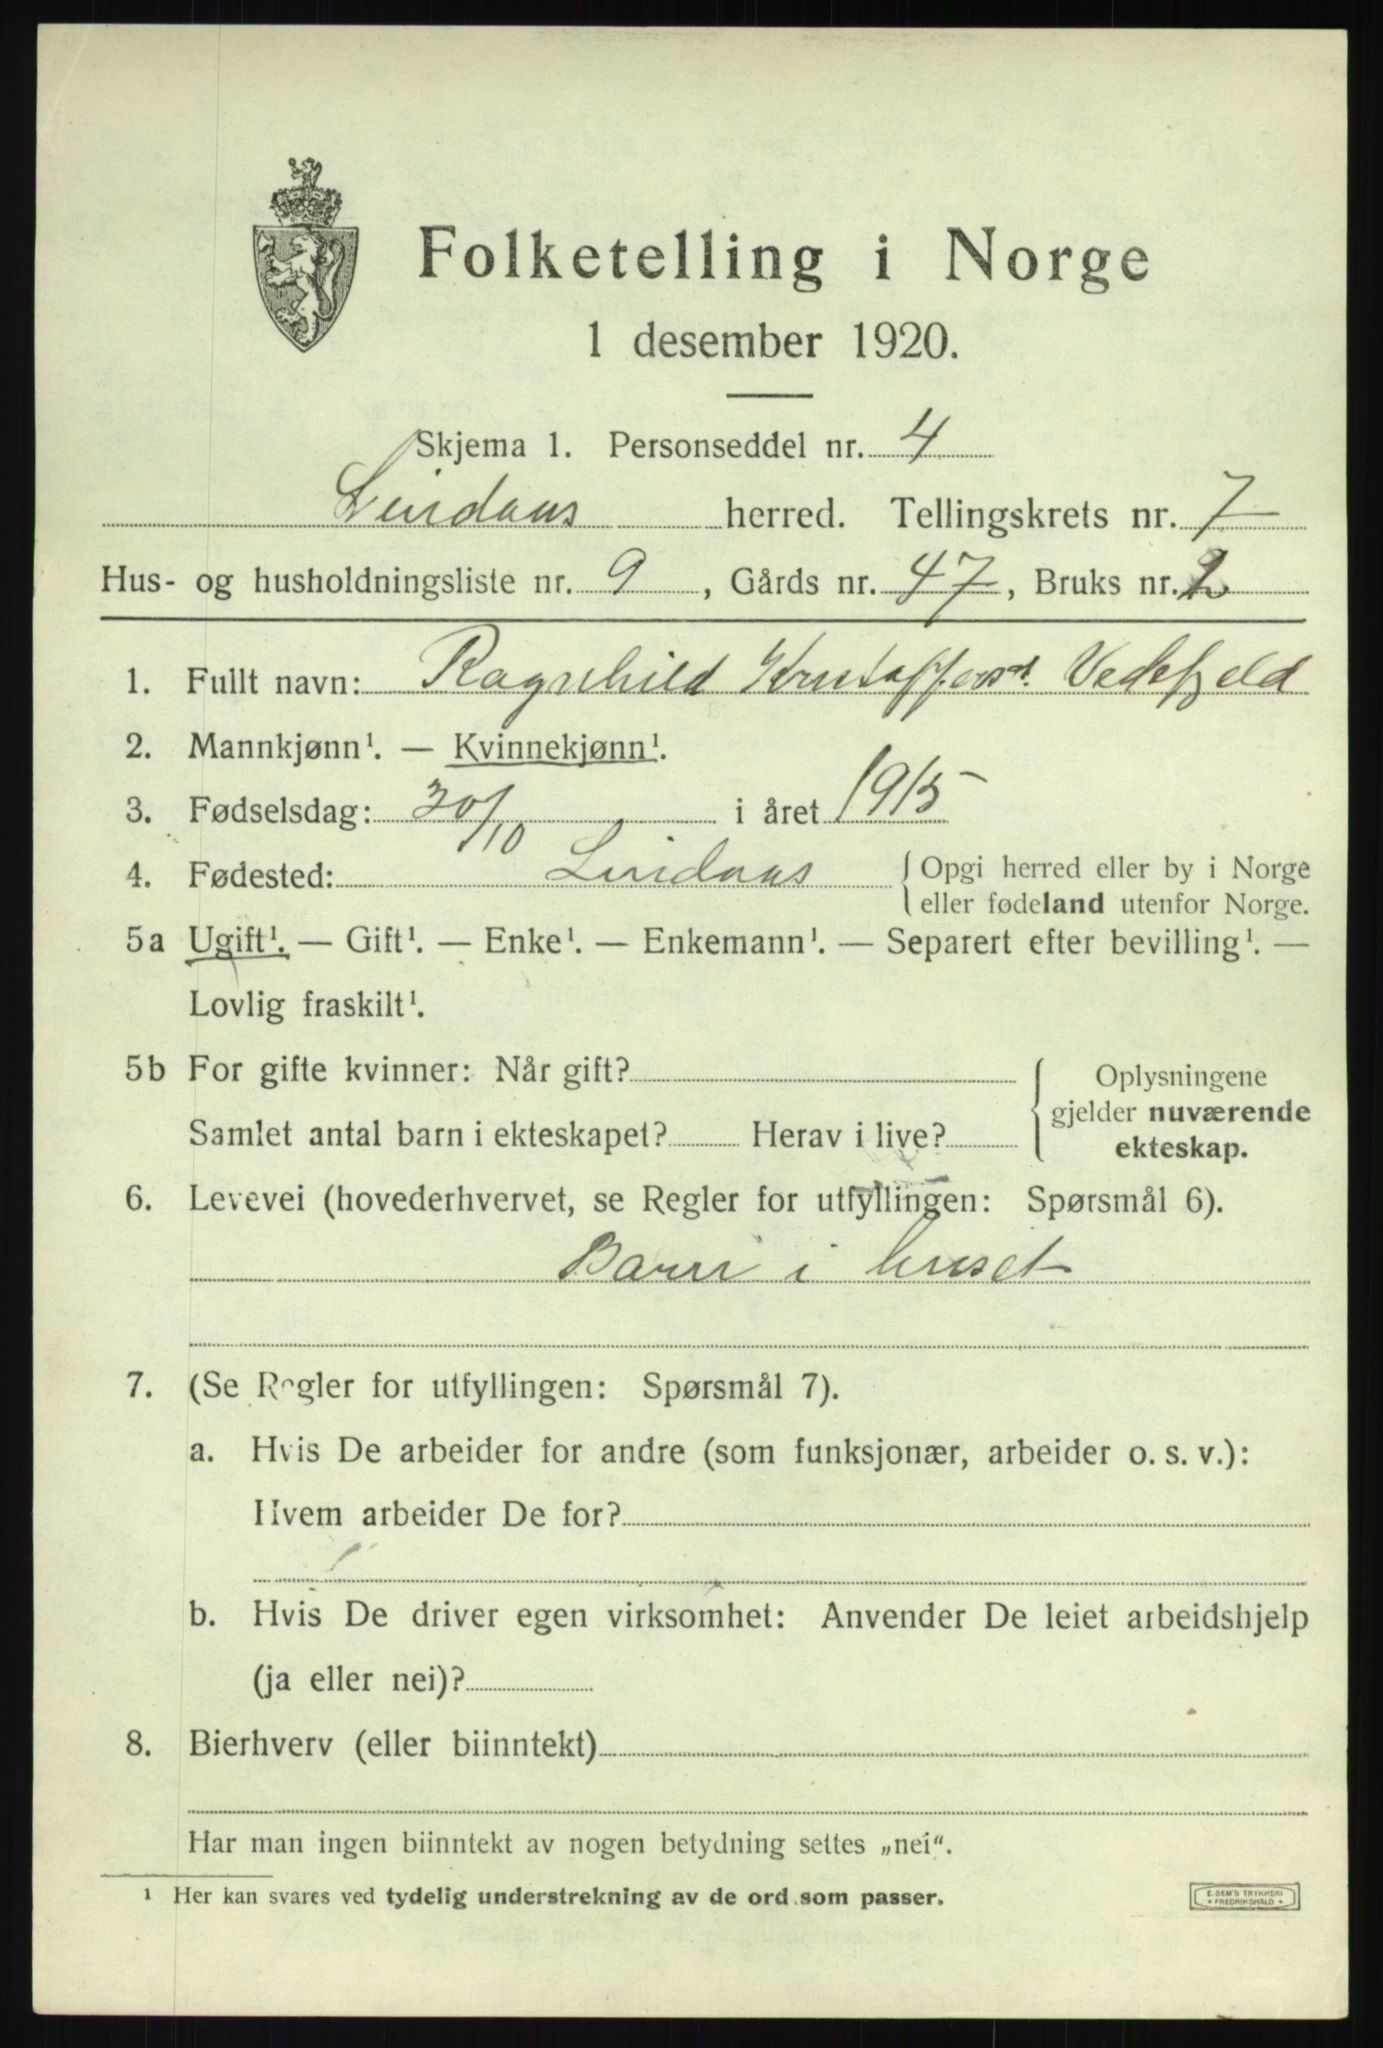 Folketelling i Norge
1 desember 1920.
Skjema 1. Personseddel nr. 4
Lindaas herred. Tellingskrets nr. 7
Hus- og husholdningsliste nr. 9, Gårds nr. 47, Bruks nr. 2
1. Fullt navn: Ragnhild Kristoffersd. Vedefjeld
2. Mannkjønn¹. — Kvinnekjønn¹.
3. Fødselsdag: 30/10 i året 1915
4. Fødested: Lindaas { Opgi herred eller by i Norge
eller fødeland utenfor Norge.
5a Ugift¹. — Gift¹. — Enke¹. — Enkemann¹. — Separert efter bevilling¹. —
Lovlig fraskilt¹.
5b For gifte kvinner: Når gift?
Samlet antal barn i ekteskapet? Herav i live?
Oplysningene
gjelder nuværende
ekteskap.
6. Levevei (hovederhvervet, se Regler for utfyllingen: Spørsmål 6).
Barn i huset
7. (Se Regler for utfyllingen: Spørsmål 7).
a. Hvis De arbeider for andre (som funksjonær, arbeider o. s. v.):
Hvem arbeider De for?
b. Hvis De driver egen virksomhet: Anvender De leiet arbeidshjelp
(ja eller nei)?
8. Bierhverv (eller biinntekt)
Har man ingen biinntekt av nogen betydning settes „nei“.
¹ Her kan svares ved tydelig understrekning av de ord som passer.
E. SEM'S TRYKKERI
• FREDRIKSHALD •